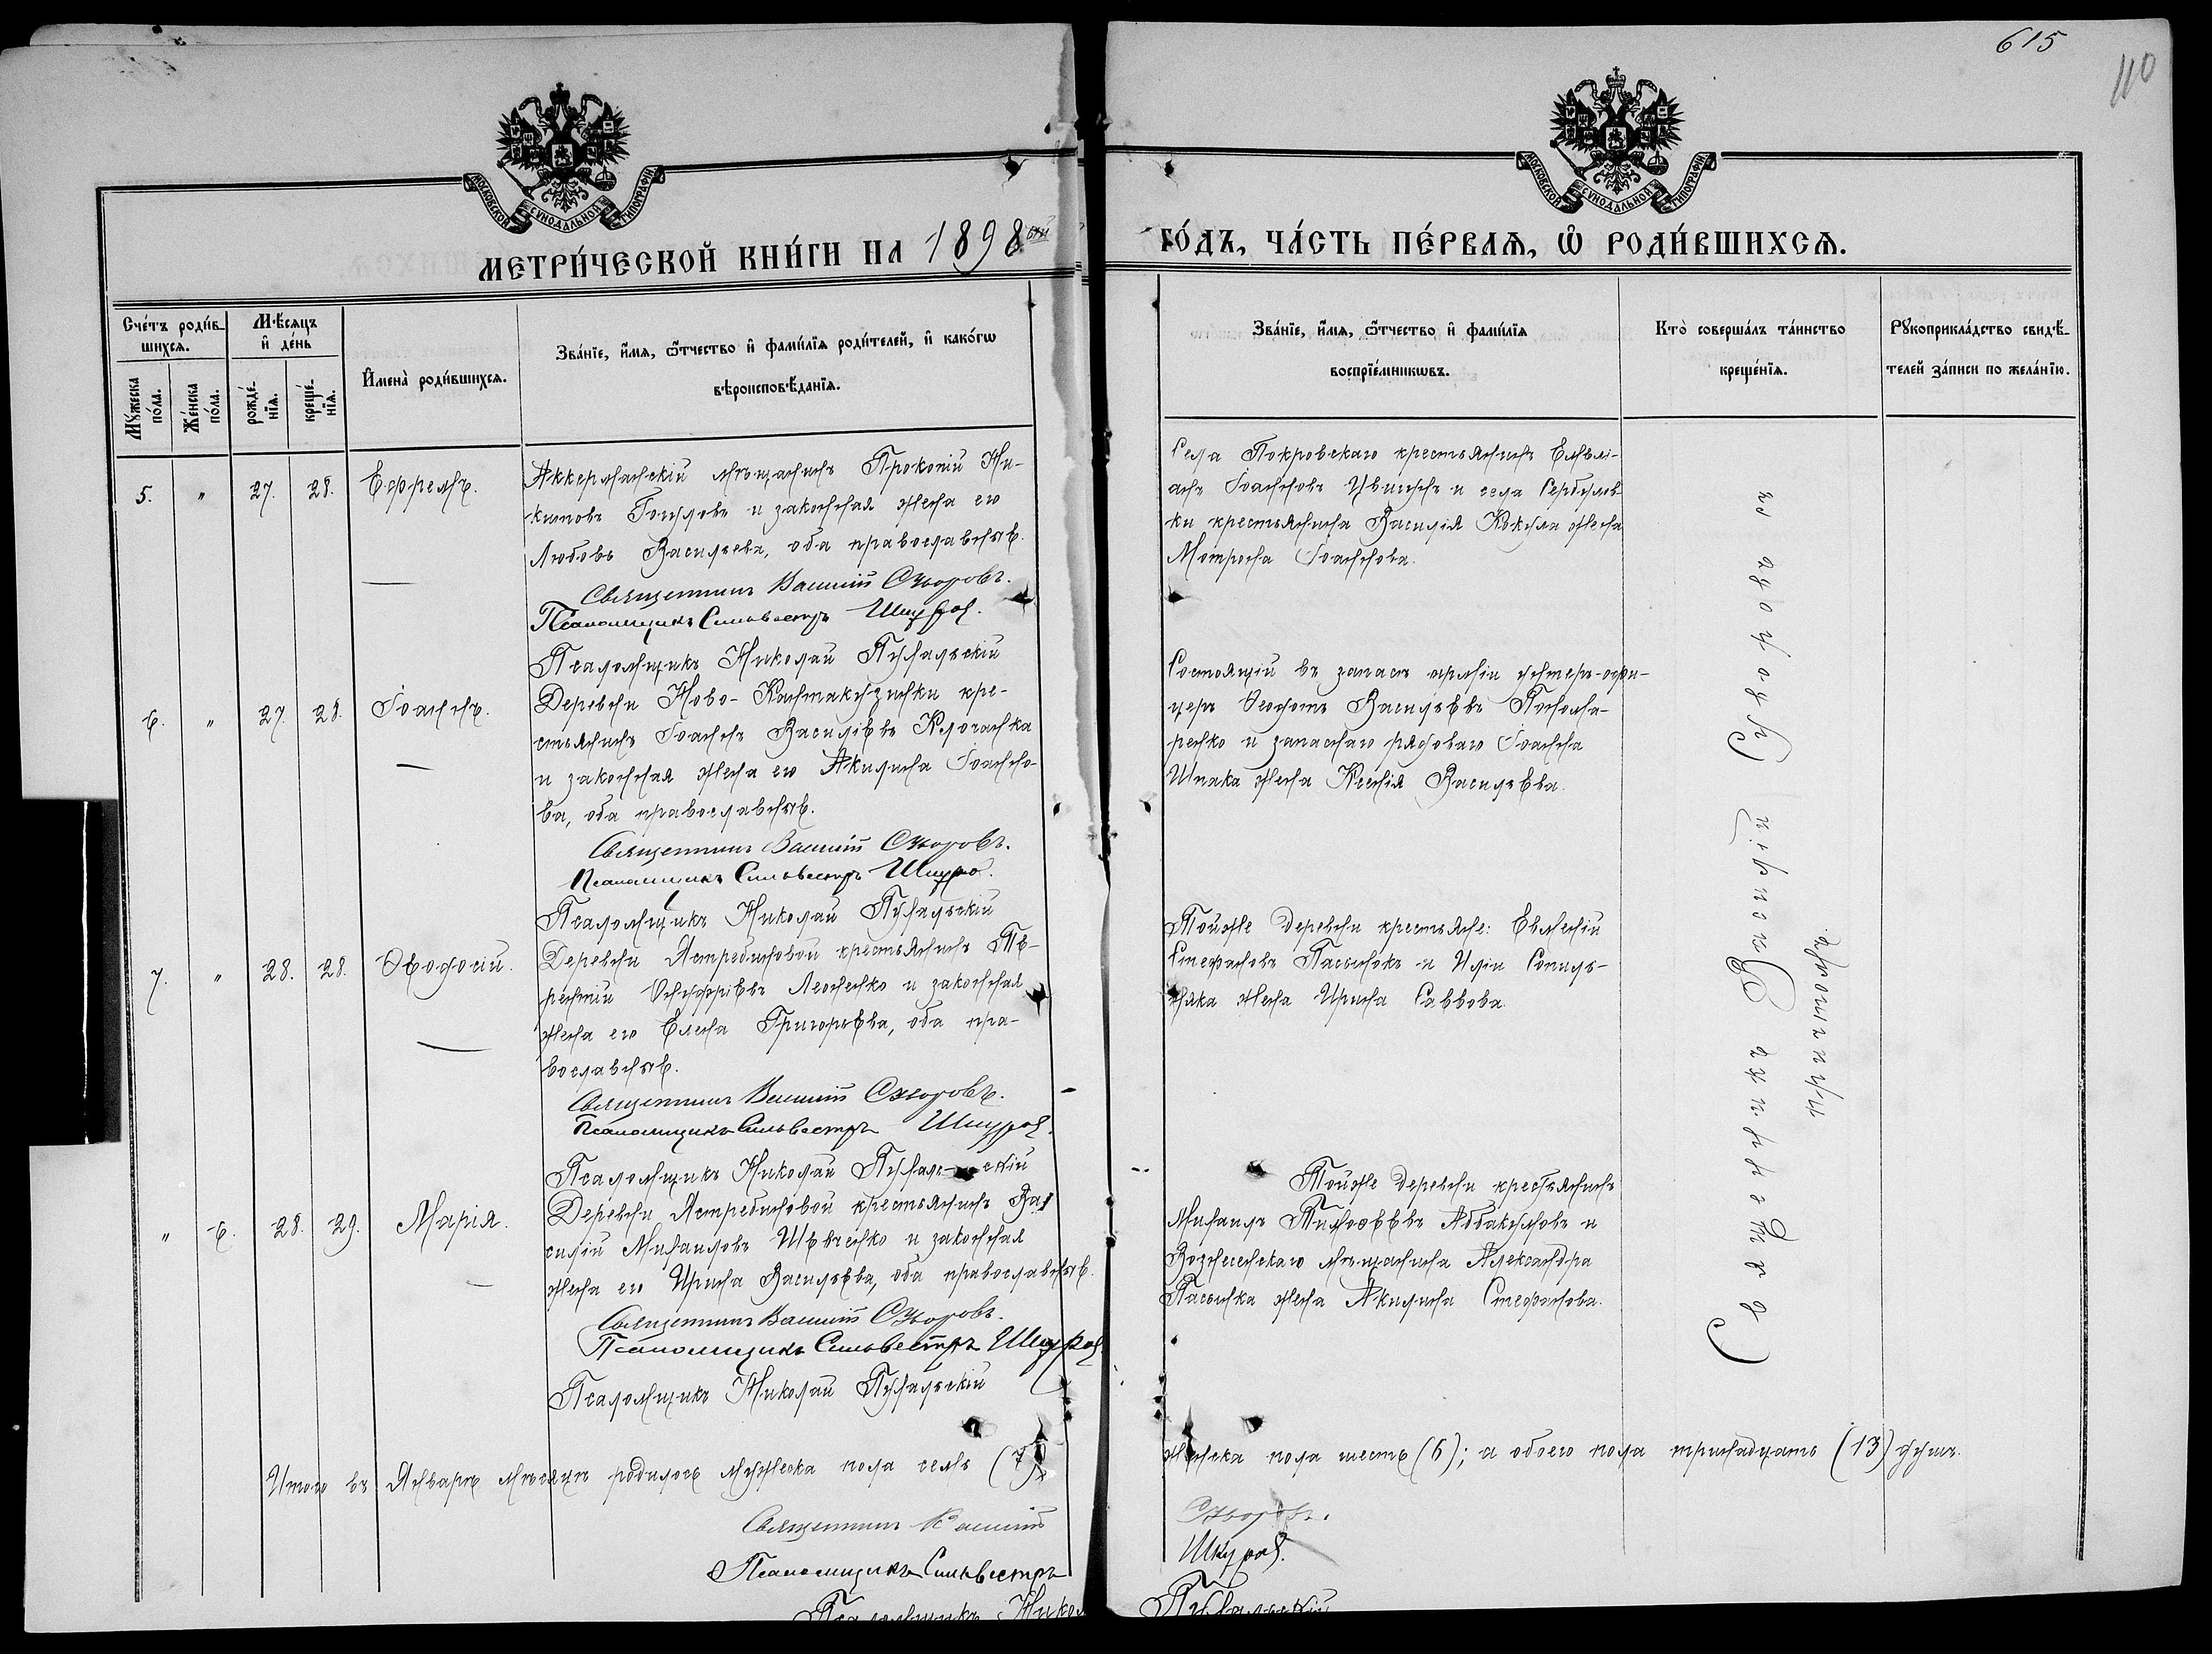 615
110
МОСКОВСКОЙ СѴНОДАЛЬНОЙ ТИПОГРАФІИ
МОСКОВСКОЙ СѴНОДАЛЬНОЙ ТИПОГРАФІИ
МЕТРИ́ЧЕСКОЙ КНИ́ГИ НА 1898 ГО́ДЪ, ЧА́СТЬ ПЕ́РВАЯ, Ѡ҆ РОДИ́ВШИХСЯ.
Сче́тъ роди́в-
шихся.
Мꙋ́жеска по́ла.
Же́нска по́ла.
Мѣ́сяцъ и҆ де́нь
рожде́-
нїя.
креще́-
нїя.
И҆мена̀ роди́вшихся.
Зва́нїе, и҆́мя, ѻ҆́тчество и҆ фами́лїя роди́телей, и҆ како́гѡ
вѣроисповѣ́данїя.
Зва́нїе, и҆́мя, ѻ҆́тчество и҆ фами́лїя
воспрїе́мникѡвъ.
Кто̀ соверша́лъ та́инство
креще́нїя.
Рꙋкоприкла́дство свидѣ́-
телей за́писи по жела́нїю.
5. " 27. 28. Ефремъ.
Аккерманскій мѣщанинъ Прокопій Ни-
китовъ и законная жена его
Любовь Васильева, оба православные.
Священникъ Василій
Псаломщикъ Сильвестръ Шкура.
Псаломщикъ Николай
Села Покровскаго крестьянинъ Емели-
анъ Іоанновъ и села Сербулов-
ки крестьянина Василія жена
Мотрона Іоаннова.
6. " 27. 28. Іоаннъ.
Деревни Ново-Кантакузинки кре-
стьянинъ Іоаннъ Василіевъ Клочанка
и законная жена его Акилина Іоанно-
ва, оба православные.
Священникъ Василій
Псаломщикъ Сильвестръ
Псаломщикъ Николай
Состоящій въ запасѣ арміи унтеръ-офи-
церъ Ѳеодотъ Васильевъ Понома-
ренко и запаснаго рядоваго Іоанна
Шпака жена Ксенія Васильева.
7. " 28. 28. Ѳеодосій.
Деревни Ястребиновой крестьянинъ Те-
рентій Онуфріевъ Леоненко и законная
жена его Елена Григорьева, оба пра-
вославные.
Священникъ Василій
Псаломщикъ Сильвестръ
Псаломщикъ Николай
Тойже деревни крестьяне: Евгеній
Стефановъ Пасынокъ и Иліи Сопиль-
няка жена Ирина Саввова.
" 6. 28. 29. Марія.
Деревни Ястребиновой крестьянинъ Ва-
силій Михаиловъ Шевченко и законная
жена его Ирина Васильева, оба православные.
Священникъ Василій
Псаломщикъ Сильвестръ
Псаломщикъ Николай
Тойже деревни крестьянинъ
Михаилъ Тимоѳеевъ Аббакумовъ и
Вознесенскаго мѣщанина Александра
Пасынка жена Акилина Стефанова.
Священникъ Василій
Итого въ Январѣ мѣсяцѣ родилось мужеска пола семь (7), женска пола шесть (6); а обоего пола тринадцать (13) душъ.
Священникъ Василій
Псаломщикъ Сильвестръ
Псаломщикъ Николай